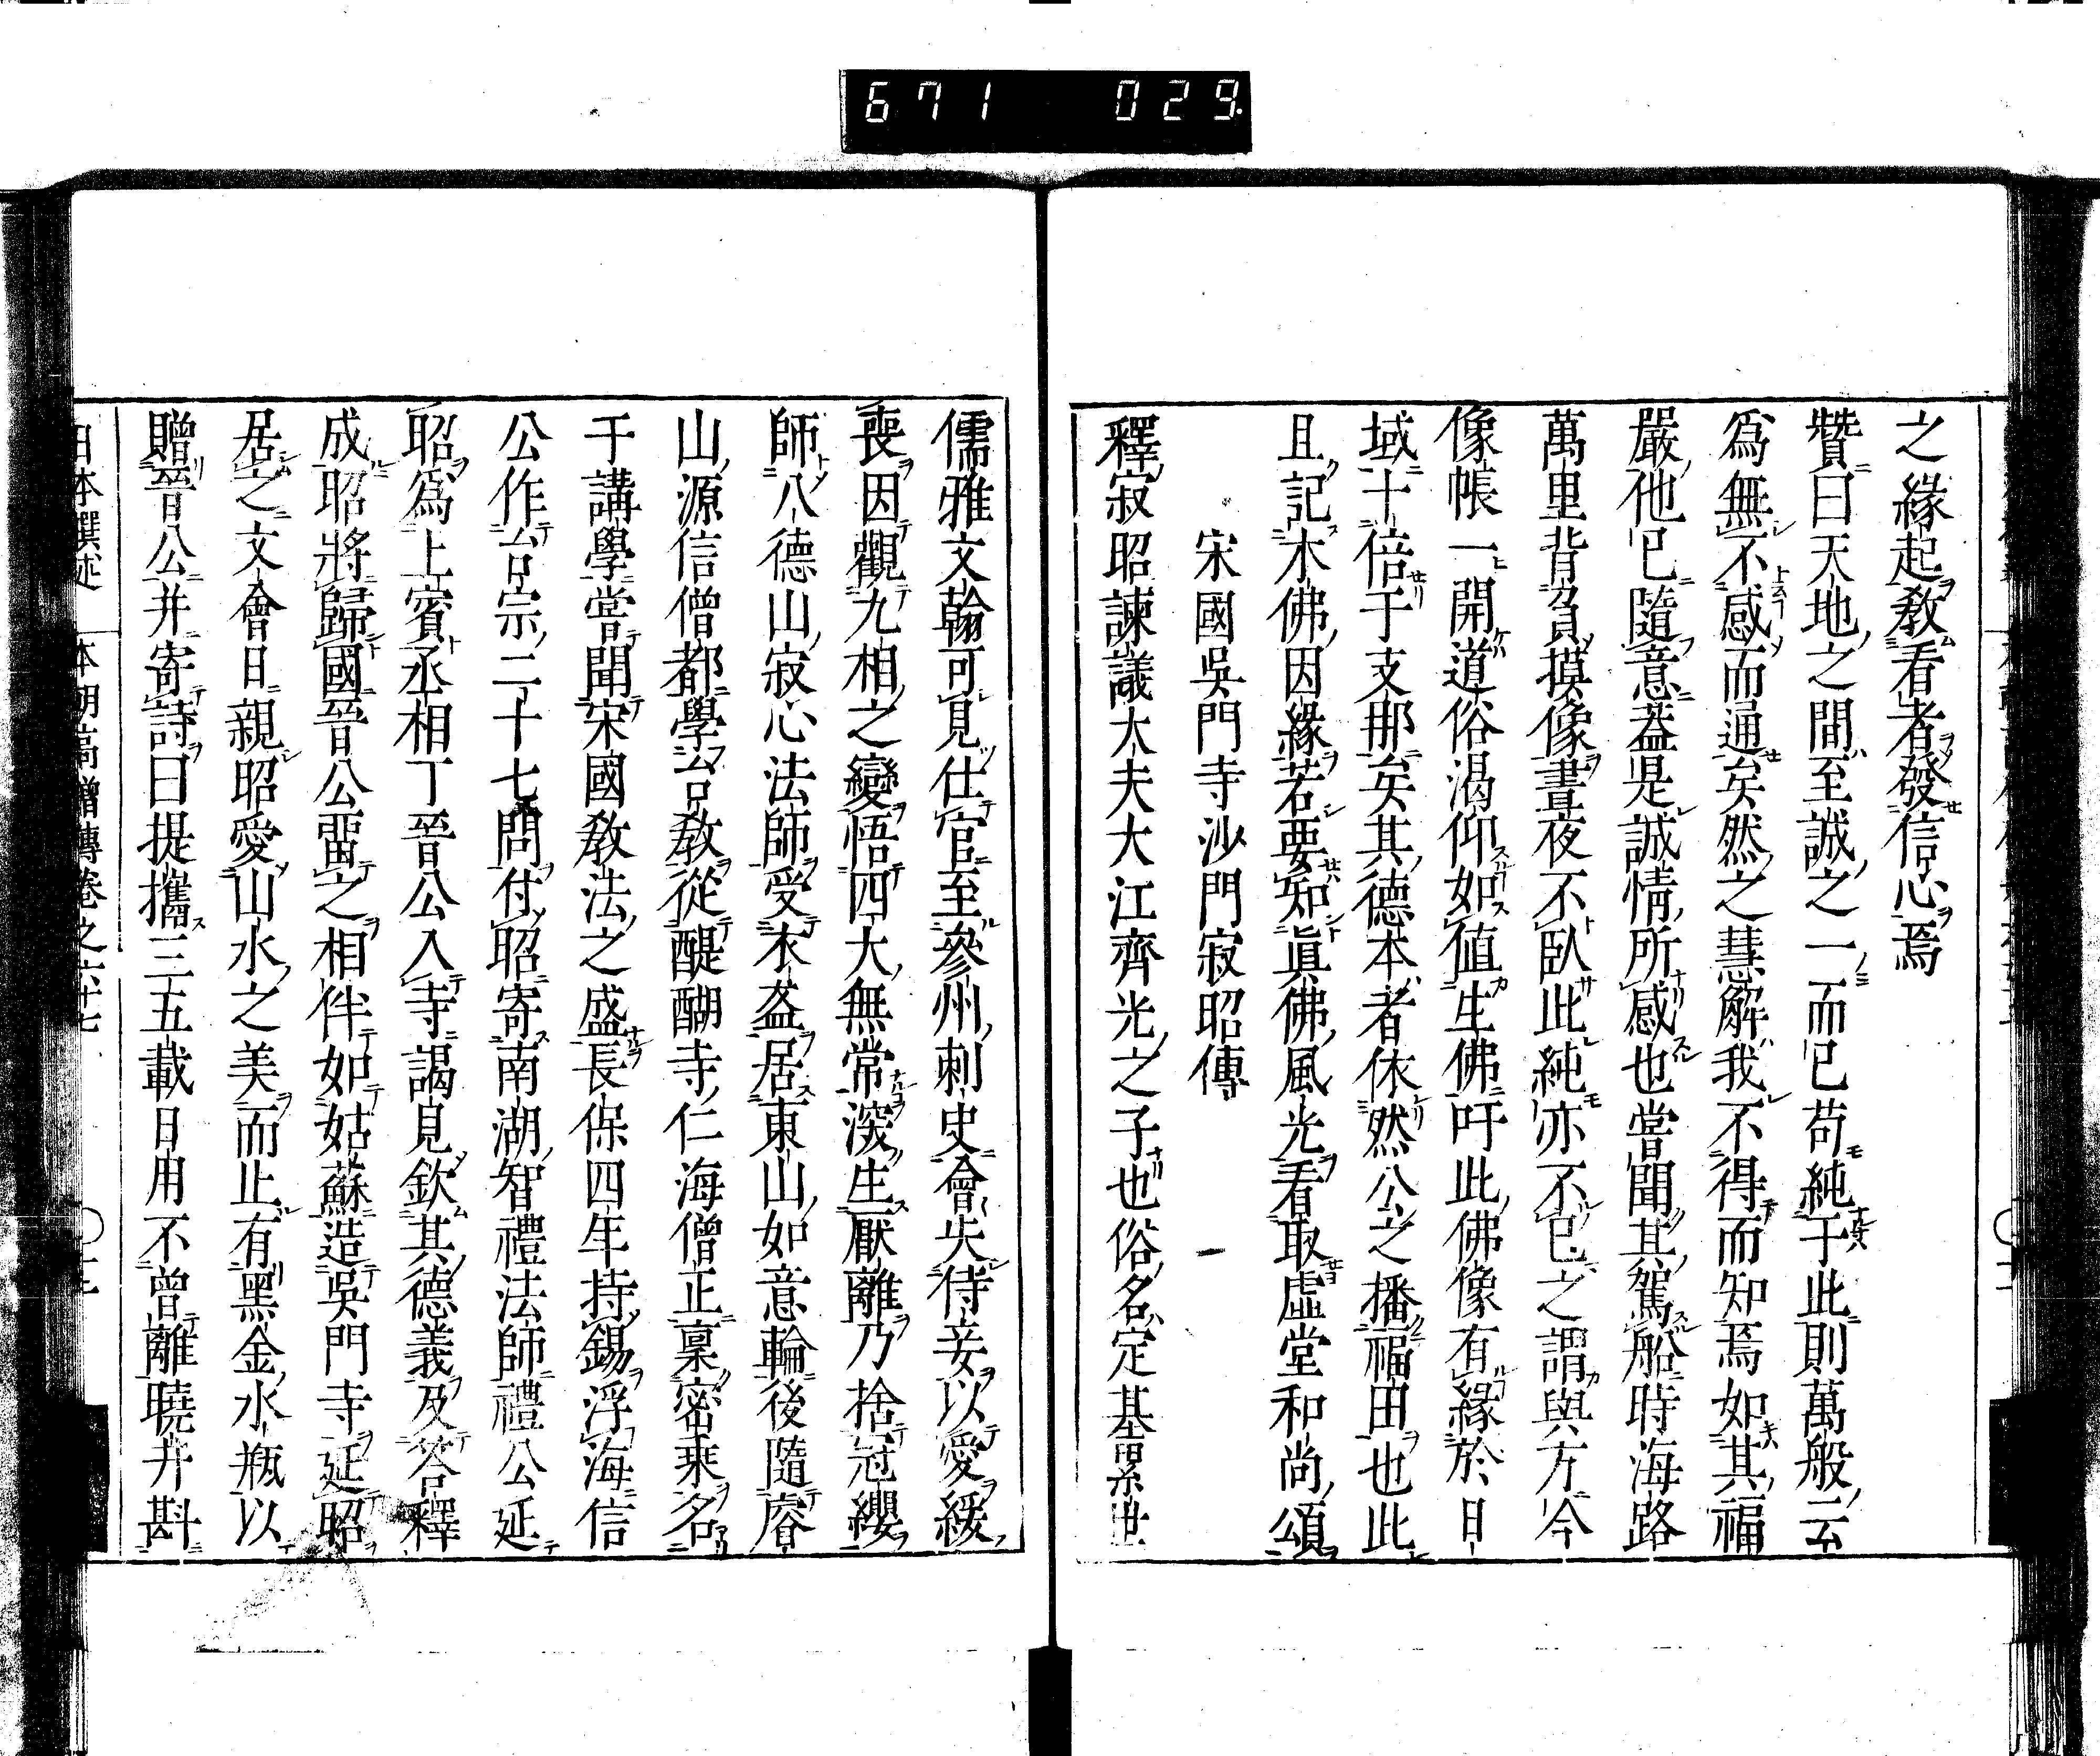 671 029
之緣起教看者發信心焉
贊曰天地之間至誠之一而已苟純于此則萬般云
爲無不感而通矣然之慧解我不得而知焉如其福
嚴他已隨意蓋是誠情所感也嘗聞其駕船時海路
萬里背負摸像晝夜不臥此純亦不已之謂與方今
像帳一開道俗渴仰如值生佛吁此佛像有緣於日
域十倍于支那矣其德本者依然公之播福田也此
且記木佛因緣若要知眞佛風光看取虛堂和尚頌
宋國吳門寺沙門寂昭傳
釋寂昭諫議大夫大江齊光之子也俗名定基累世
儒雅文翰可見仕官至參州刺史會失侍妾以愛緩
喪因觀九相之變悟四大無常深生厭離乃捨冠纓
師八德山寂心法師受衣盋居東山如意輪後隨睿
山源信僧都學台教從醍醐寺仁海僧正稟密乘名
于講學嘗聞宋國教法之盛長保四年持錫浮海信
公作台宗二十七問付昭寄南湖智禮法師禮公延
昭爲上賓丞相丁晉公入寺謁見欽其德義及答釋
成昭將歸國晉公畱之相伴如姑蘇造吳門寺延昭
居之文會日親昭愛山水之美而止有黑金水瓶以
贈晉公并寄詩曰提攜三五載日用不曾離曉井斟
日本撰述 本朝高僧傳卷之六十七